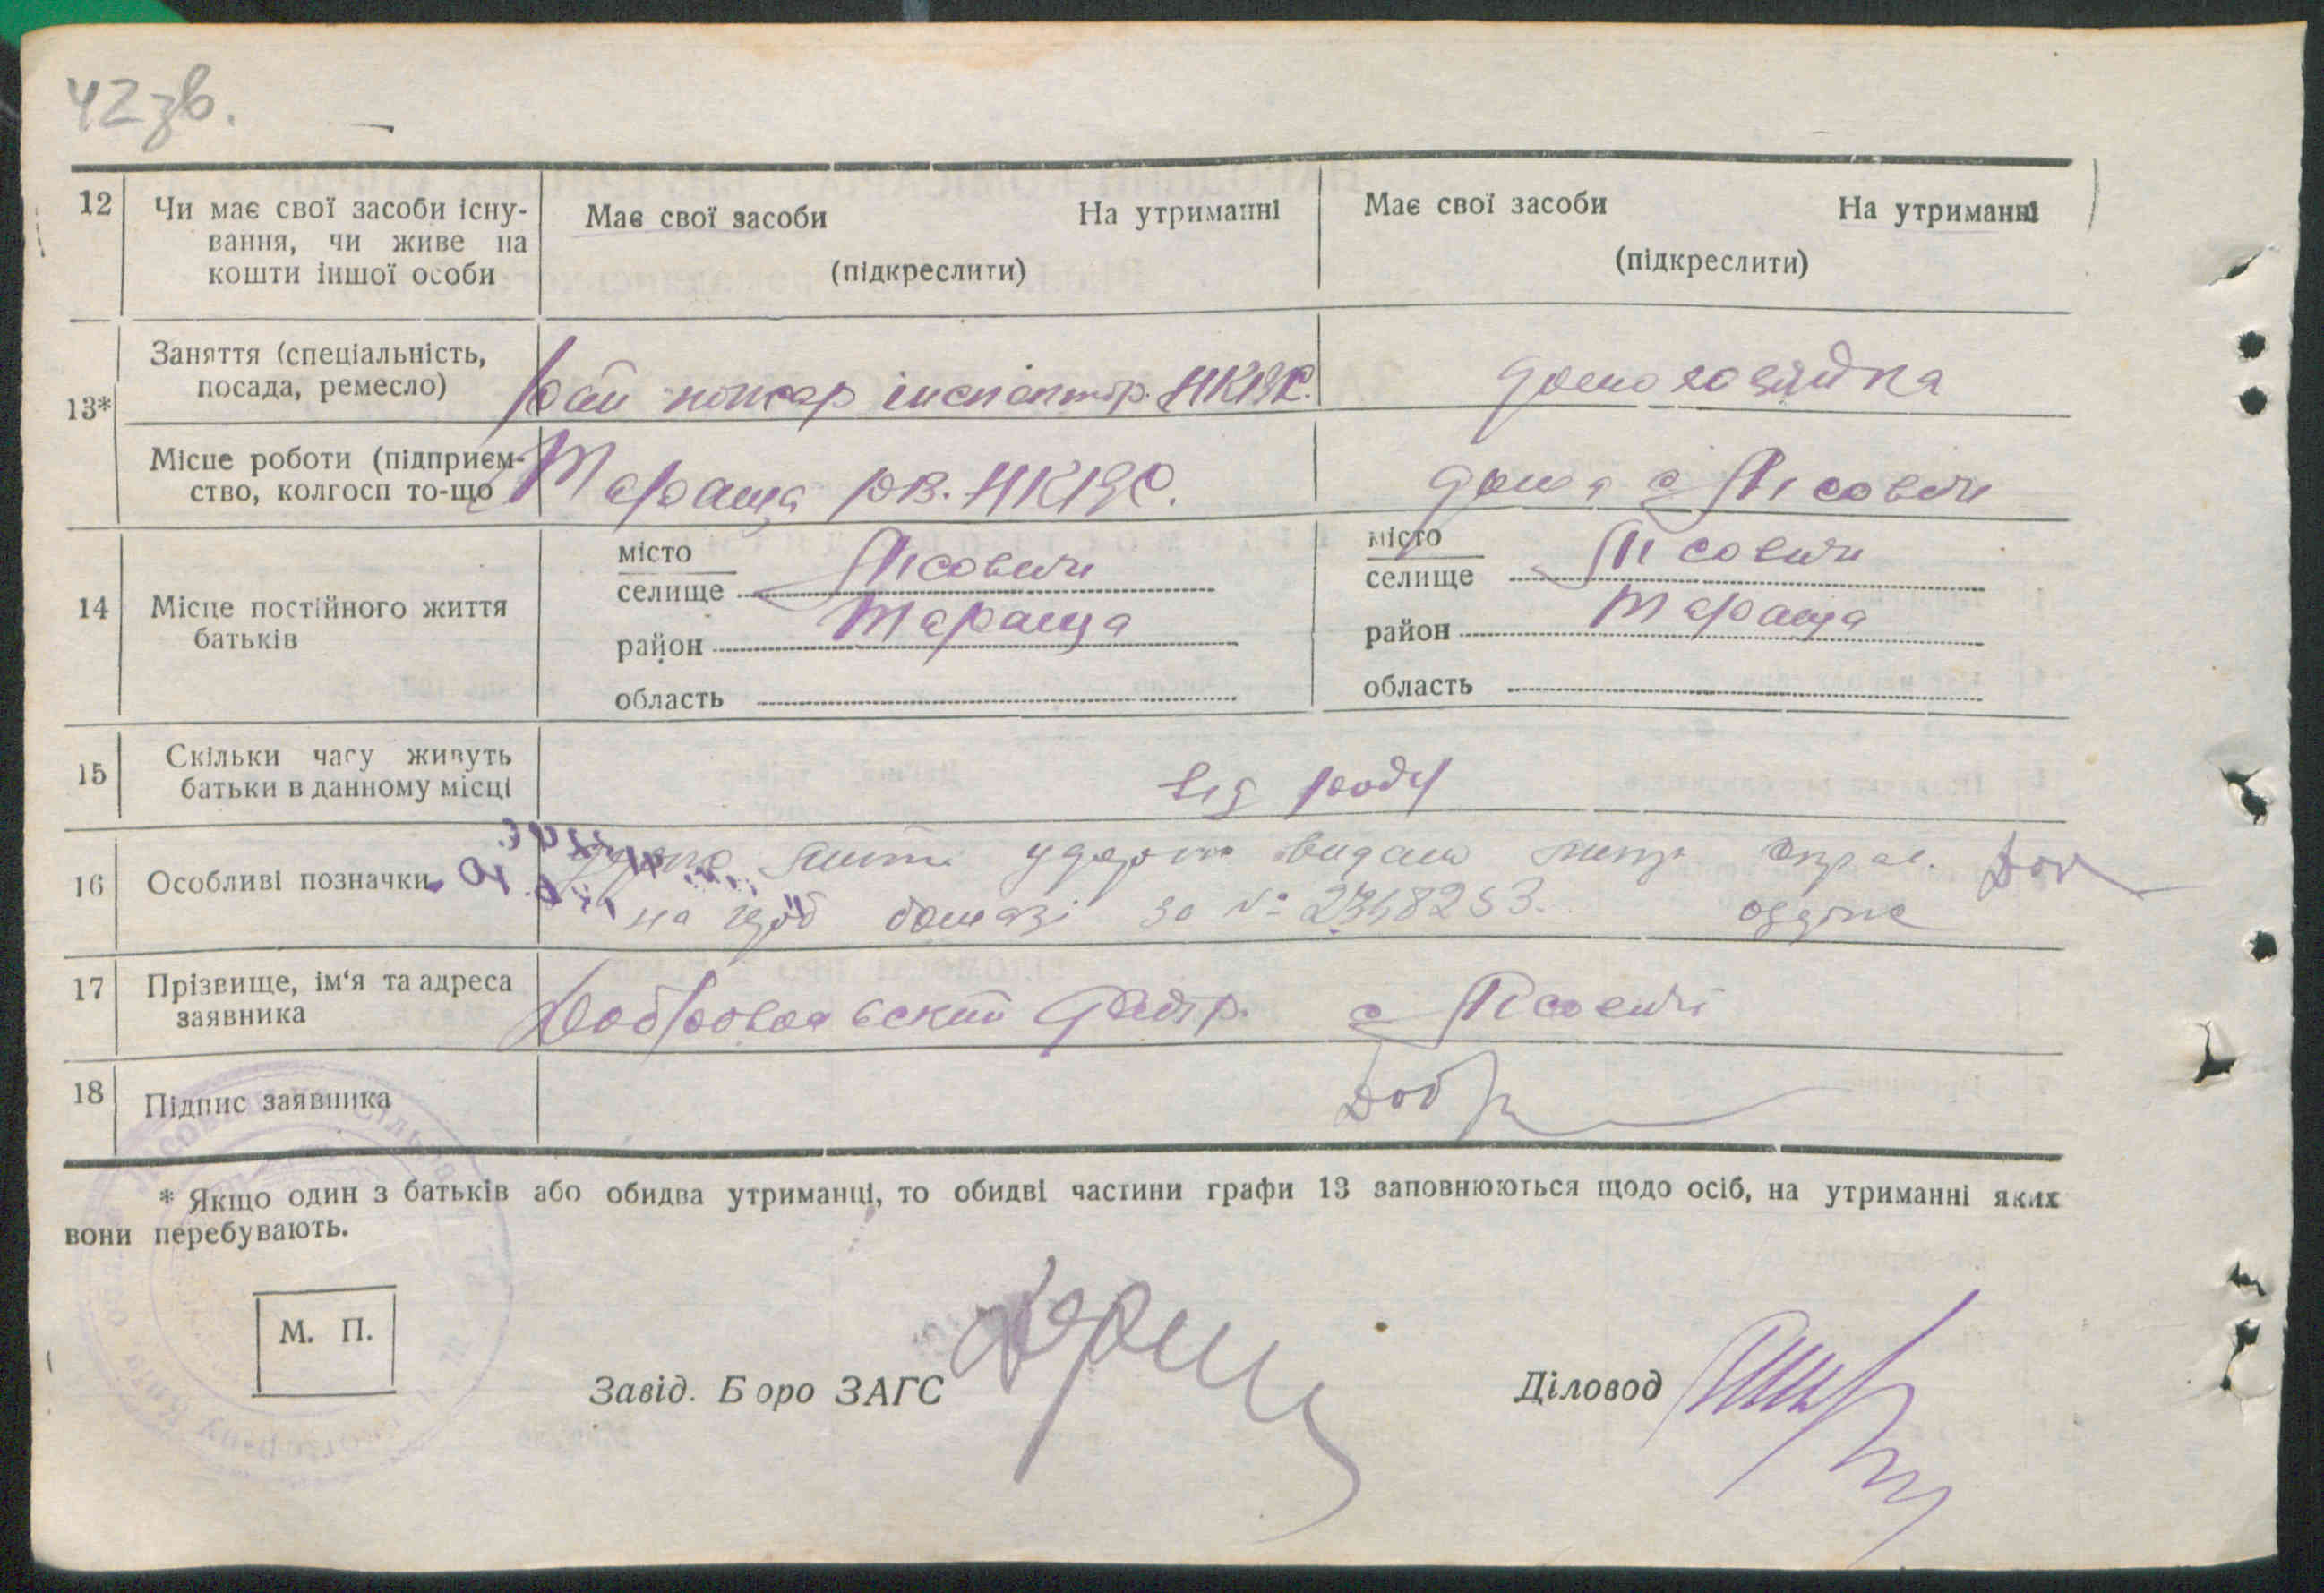 42 зв.
12 Чи має свої засоби існу-
вання, чи живе на
кошти іншої особи
Має свої засоби На утриманні
(підкреслити)
Має свої засоби На утриманні
(підкреслити)
13*
Заняття (спеціальність,
посада, ремесло)
Рай пожар інспектор. НКВС.
домохозяйка
Місце роботи (підприєм-
ство, колгосп то-що
Тараща РВ. НКВС.
дома с Лісовичі
14 Місце постійного життя
батьків
місто
селище Лісовичі
район Тараща
область
місто
селище Лісовичі
район Тараща
область
15 Скільки часу живуть
батьки в данному місці
від роду
16 Особливі позначки
видано
на за № 2348253.
17 Прізвище, ім'я та адреса
заявника
Добровольский с Лісовичі
18 Підпис заявника
Добр
* Якщо один з батьків або обидва утриманці, то обидві частини графи 13 заповнюються щодо осіб, на утриманні яких
вони перебувають.
М. П.
Завід. Бюро ЗАГС
Діловод